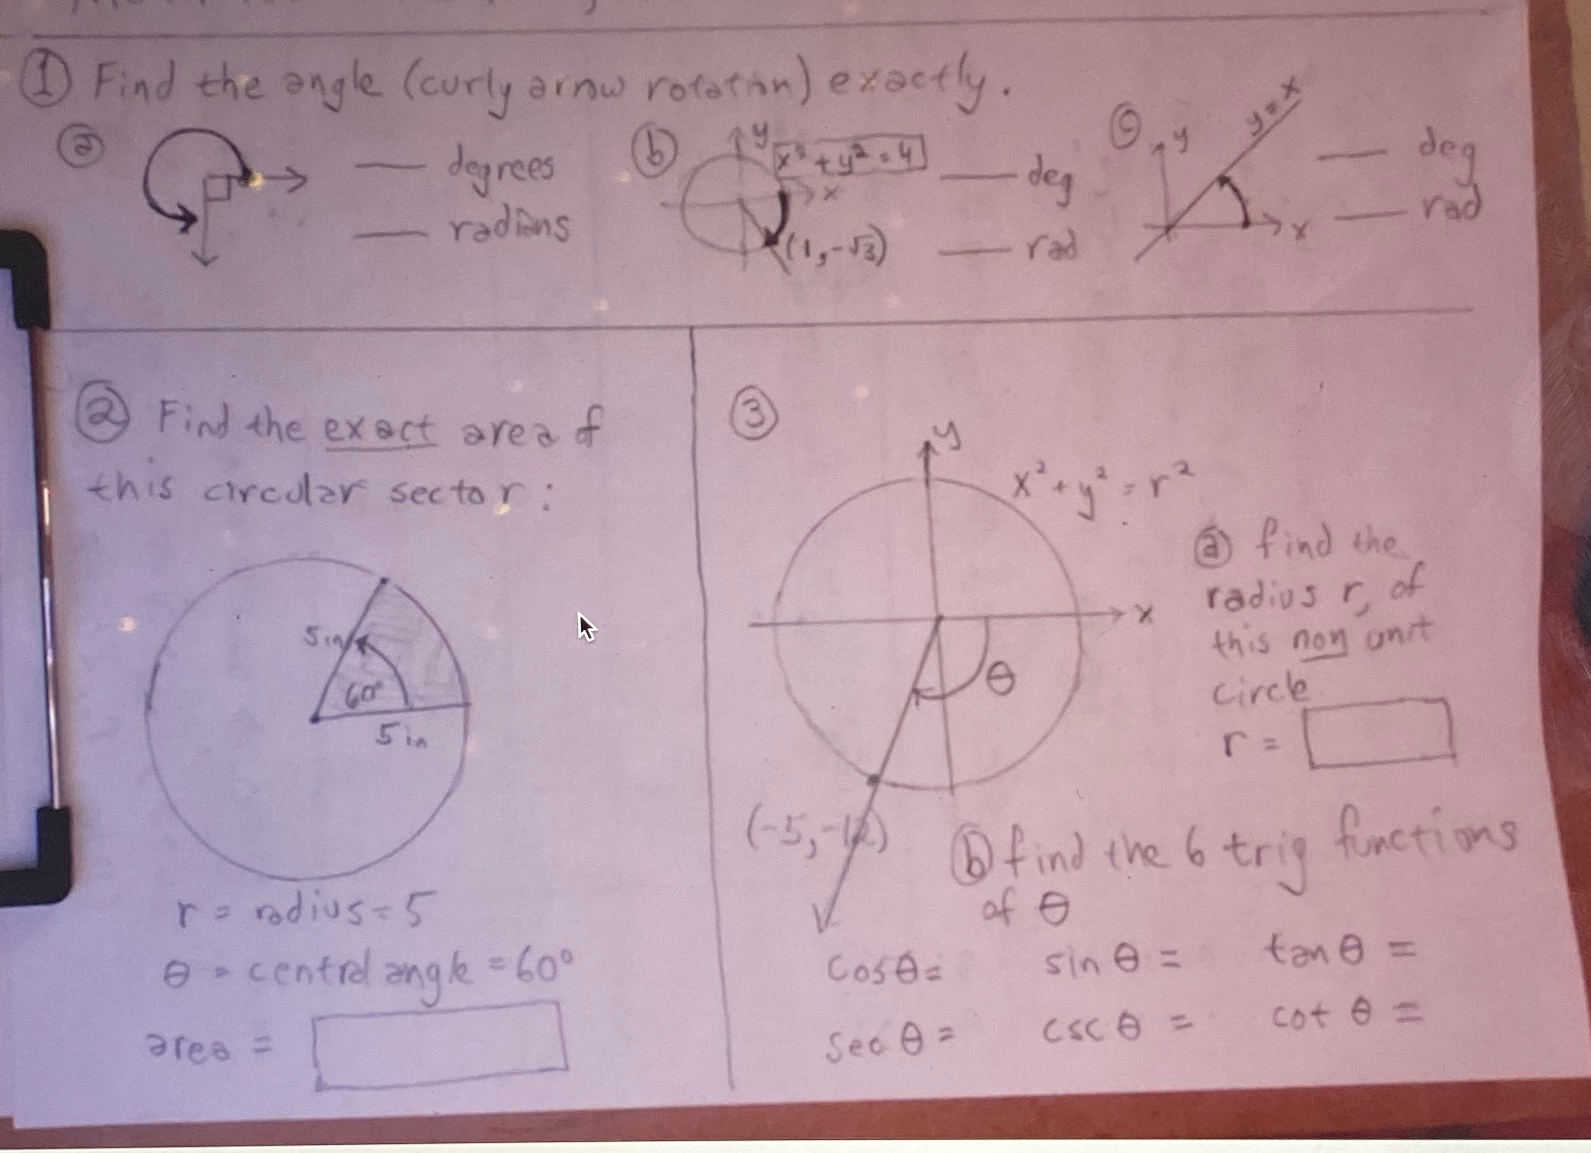 ① Find the angle (curly arrow rotation) exactly.
ⓐ
degrees
radians
ⓑ
y
x² + y² = 4
x
(1, -√3)
deg
rad
ⓒ
y
y = x
x
deg
rad
② Find the exact area of
this circular sector:
5in
60°
5 in
r = radius = 5
θ = central angle = 60°
area =
③
y
x² + y² = r²
x
θ
(-5, -12)
ⓐ find the
radius r, of
this non unit
circle
r =
ⓑ find the 6 trig functions
of θ
cosθ = sin θ = tan θ =
sec θ = csc θ = cot θ =